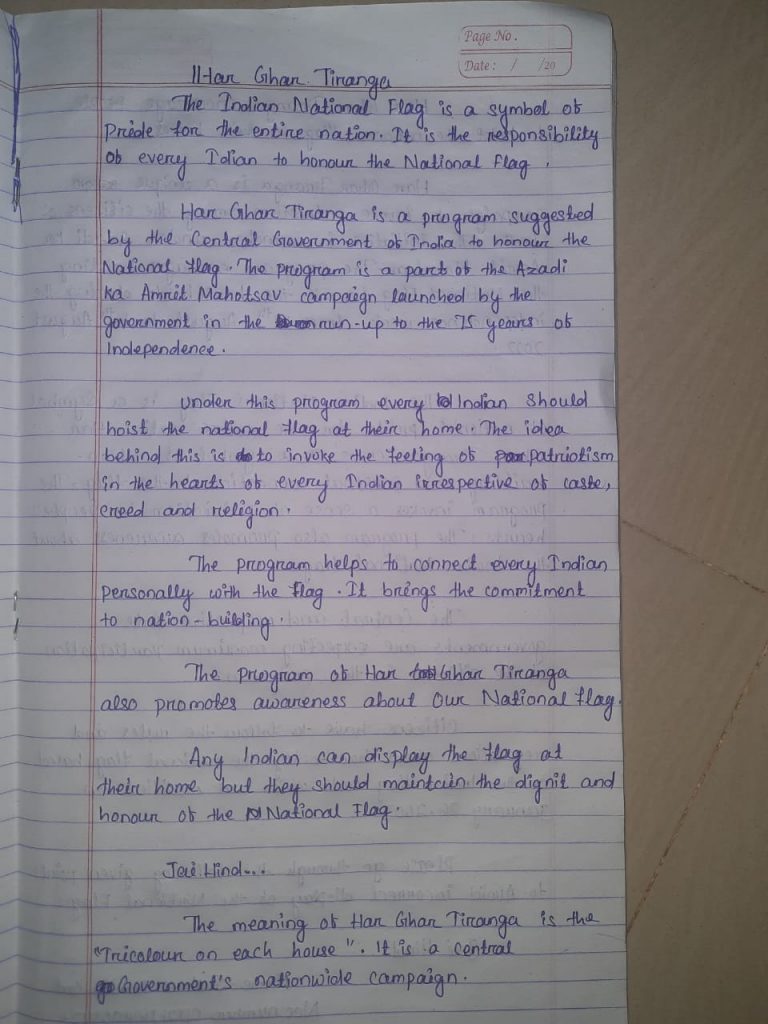 Page No.
Date: / /20
Har Ghar Tiranga
The Indian National Flag is a symbol of
Pride for the entire nation. It is the responsibility
of every Idian to honour the National Flag.
Har Ghar Tiranga is a program suggested
by the Central Government of India to honour the
National flag. The program is a part of the Azadi
ka Amrit Mahotsav campaign launched by the
government in the run-up to the 75 years of
Independence.
under this program every Indian should
hoist the national flag at their home. The idea
behind this is to invoke the feeling of patriotism
in the hearts of every Indian irrespective of caste,
creed and religion.
The program helps to connect every Indian
personally with the flag. It brings the commitment
to nation-building.
The program of Har Ghar Tiranga
also promotes awareness about Our National flag.
Any Indian can display the flag at
their home but they should maintain the dignit and
honour of the National Flag.
Jai Hind...
The meaning of Har Ghar Tiranga is the
"Tricolour on each house". It is a central
Government's nationwide campaign.